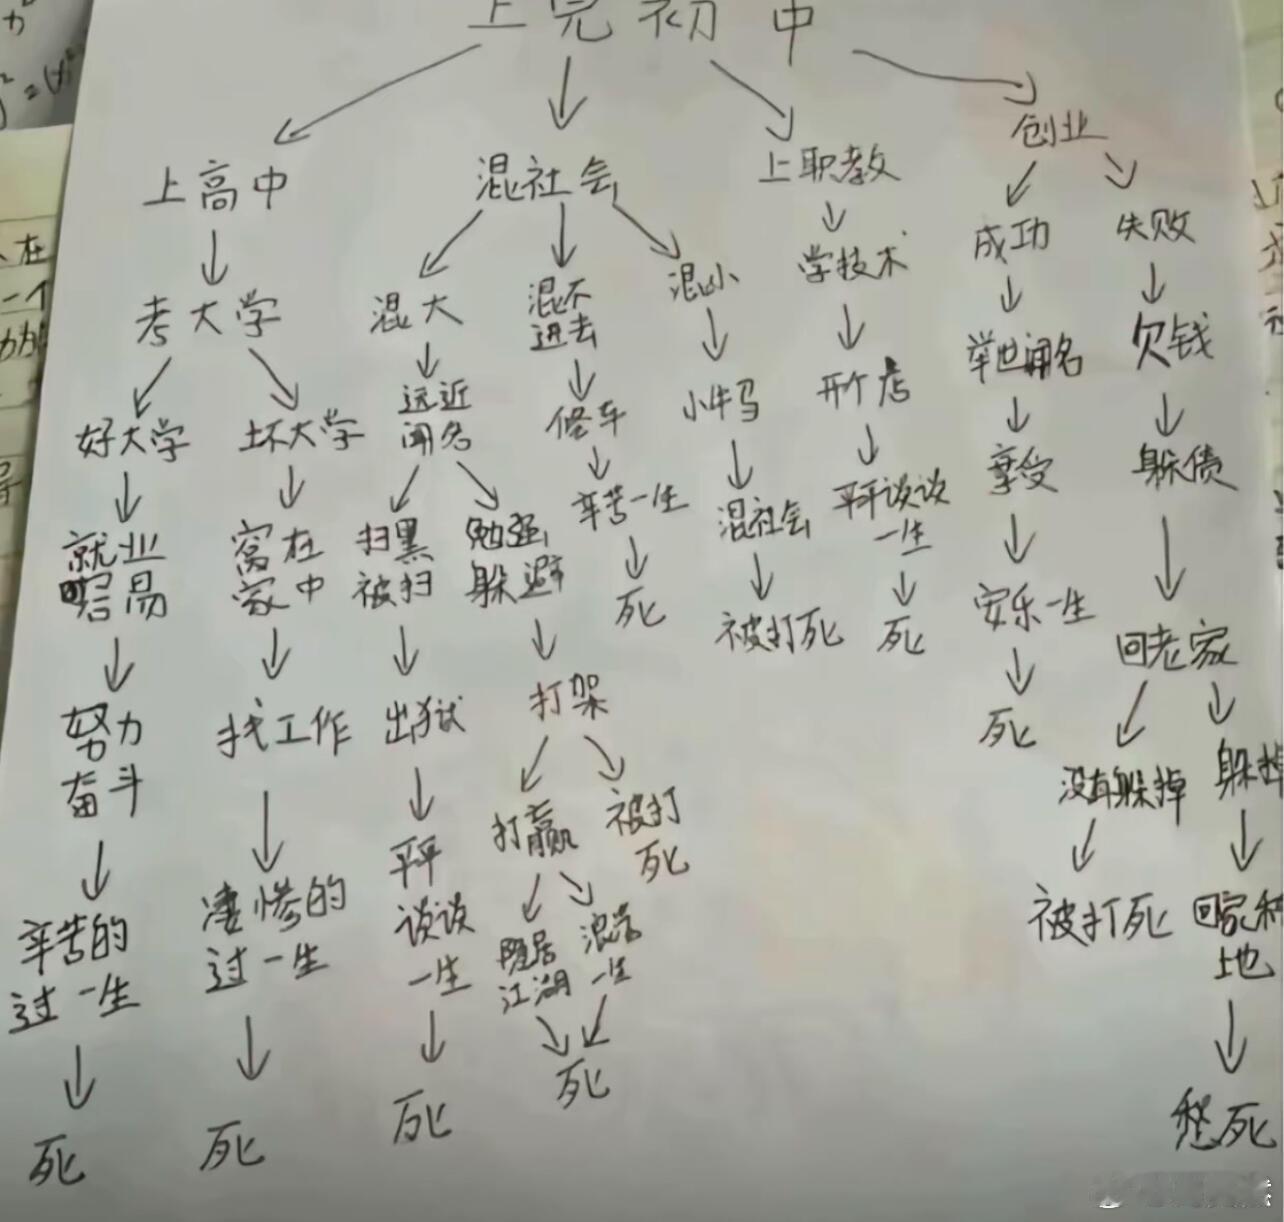 上完初中
上高中
混社会
上职教
创业
考大学
好大学
坏大学
就业
容易
努力
奋斗
辛苦的
过一生
死
窝在
家中
找工作
凄惨的
过一生
死
混大
远近
闻名
扫黑
被扫
出狱
平平
谈谈
一生
死
勉强
躲避
打架
打赢
被打
死
隐居
江湖
浪荡
一生
死
混不
进去
修车
辛苦一生
死
混小
小牛马
混社会
被打死
学技术
开个店
平平谈谈
一生
死
成功
举世闻名
享受
安乐一生
死
失败
欠钱
躲债
回老家
没有躲掉
被打死
躲掉
回家种
地
愁死
在
一个